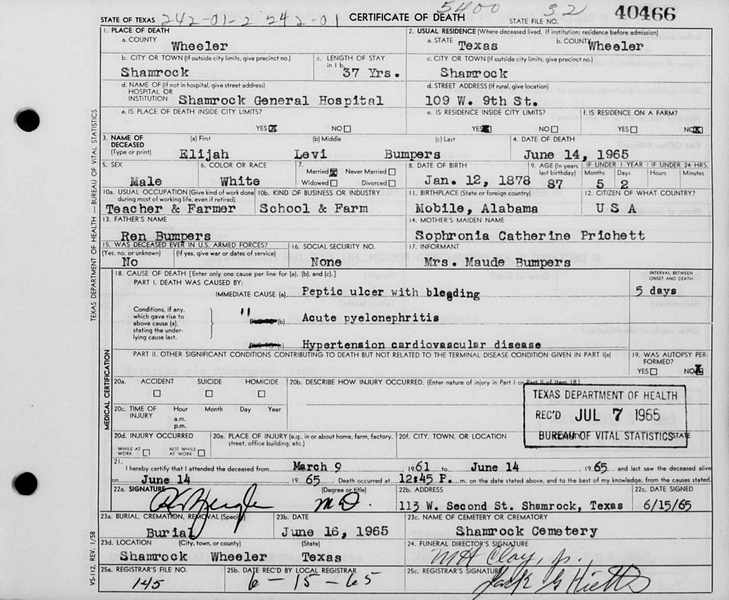 5400 32
STATE OF TEXAS 242-01-2 242-01 CERTIFICATE OF DEATH STATE FILE NO. 40466
1. PLACE OF DEATH 2. USUAL RESIDENCE (Where deceased lived. If institution: residence before admission)
a. COUNTY Wheeler a. STATE Texas b. COUNTY Wheeler
b. CITY OR TOWN (If outside city limits, give precinct no.) c. LENGTH OF STAY in 1 b. c. CITY OR TOWN (If outside city limits, give precinct no.)
Shamrock 37 Yrs. Shamrock
d. NAME OF (If not in hospital, give street address) d. STREET ADDRESS (If rural, give location)
HOSPITAL OR INSTITUTION Shamrock General Hospital 109 W. 9th St.
e. IS PLACE OF DEATH INSIDE CITY LIMITS? e. IS RESIDENCE INSIDE CITY LIMITS? f. IS RESIDENCE ON A FARM?
YES NO YES NO YES NO
3. NAME OF DECEASED (a) First (b) Middle (c) Last 4. DATE OF DEATH
(Type or print) Elijah Levi Bumpers June 14, 1965
5. SEX 6. COLOR OR RACE 7. Married Never Married 8. DATE OF BIRTH 9. AGE (In years last birthday) IF UNDER 1 YEAR IF UNDER 24 HRS.
Months Days Hours Minutes
Male White Widowed Divorced Jan. 12, 1878 87 5 2
10a. USUAL OCCUPATION (Give kind of work done during most of working life, even if retired) 10b. KIND OF BUSINESS OR INDUSTRY 11. BIRTHPLACE (State or foreign country) 12. CITIZEN OF WHAT COUNTRY?
Teacher & Farmer School & Farm Mobile, Alabama U S A
13. FATHER'S NAME 14. MOTHER'S MAIDEN NAME
Ren Bumpers Sophronia Catherine Prichett
15. WAS DECEASED EVER IN U.S. ARMED FORCES? 16. SOCIAL SECURITY NO. 17. INFORMANT
(Yes, no, or unknown) (If yes, give war or dates of service)
No None Mrs. Maude Bumpers
18. CAUSE OF DEATH [Enter only one cause per line for (a), (b), and (c).] INTERVAL BETWEEN ONSET AND DEATH
PART I. DEATH WAS CAUSED BY:
IMMEDIATE CAUSE (a) Peptic ulcer with bleeding 5 days
Conditions, if any, which gave rise to above cause (a), stating the underlying cause last.
" (b) Acute pyelonephritis
(c) Hypertension cardiovascular disease
PART II. OTHER SIGNIFICANT CONDITIONS CONTRIBUTING TO DEATH BUT NOT RELATED TO THE TERMINAL DISEASE CONDITION GIVEN IN PART I(a) 19. WAS AUTOPSY PERFORMED?
YES NO
20a. ACCIDENT SUICIDE HOMICIDE 20b. DESCRIBE HOW INJURY OCCURRED. (Enter nature of injury in Part I or Part II of item 18.)
20c. TIME OF INJURY Hour Month Day Year
a.m.
p.m.
TEXAS DEPARTMENT OF HEALTH
REC'D JUL 7 1965
BUREAU OF VITAL STATISTICS
20d. INJURY OCCURRED 20e. PLACE OF INJURY (e.g., in or about home, farm, factory, street, office building, etc.) 20f. CITY, TOWN, OR LOCATION STATE
WHILE AT WORK NOT WHILE AT WORK
21. I hereby certify that I attended the deceased from March 9 1961 to June 14 1965 and last saw the deceased alive
on June 14 1965 Death occurred at 12:45 P. m. on the date stated above, and to the best of my knowledge, from the causes stated.
22a. SIGNATURE (Degree or title) 22b. ADDRESS 22c. DATE SIGNED
M.D. 113 W. Second St. Shamrock, Texas 6/15/65
23a. BURIAL, CREMATION, REMOVAL (Specify) 23b. DATE 23c. NAME OF CEMETERY OR CREMATORY
Burial June 16, 1965 Shamrock Cemetery
23d. LOCATION (City, town, or county) (State) 24. FUNERAL DIRECTOR'S SIGNATURE
Shamrock Wheeler Texas M H Clay, Jr.
25a. REGISTRAR'S FILE NO. 25b. DATE REC'D BY LOCAL REGISTRAR 25c. REGISTRAR'S SIGNATURE
145 6-15-65 Jack G
TEXAS DEPARTMENT OF HEALTH — BUREAU OF VITAL STATISTICS
MEDICAL CERTIFICATION
VS-112, REV. 1/58